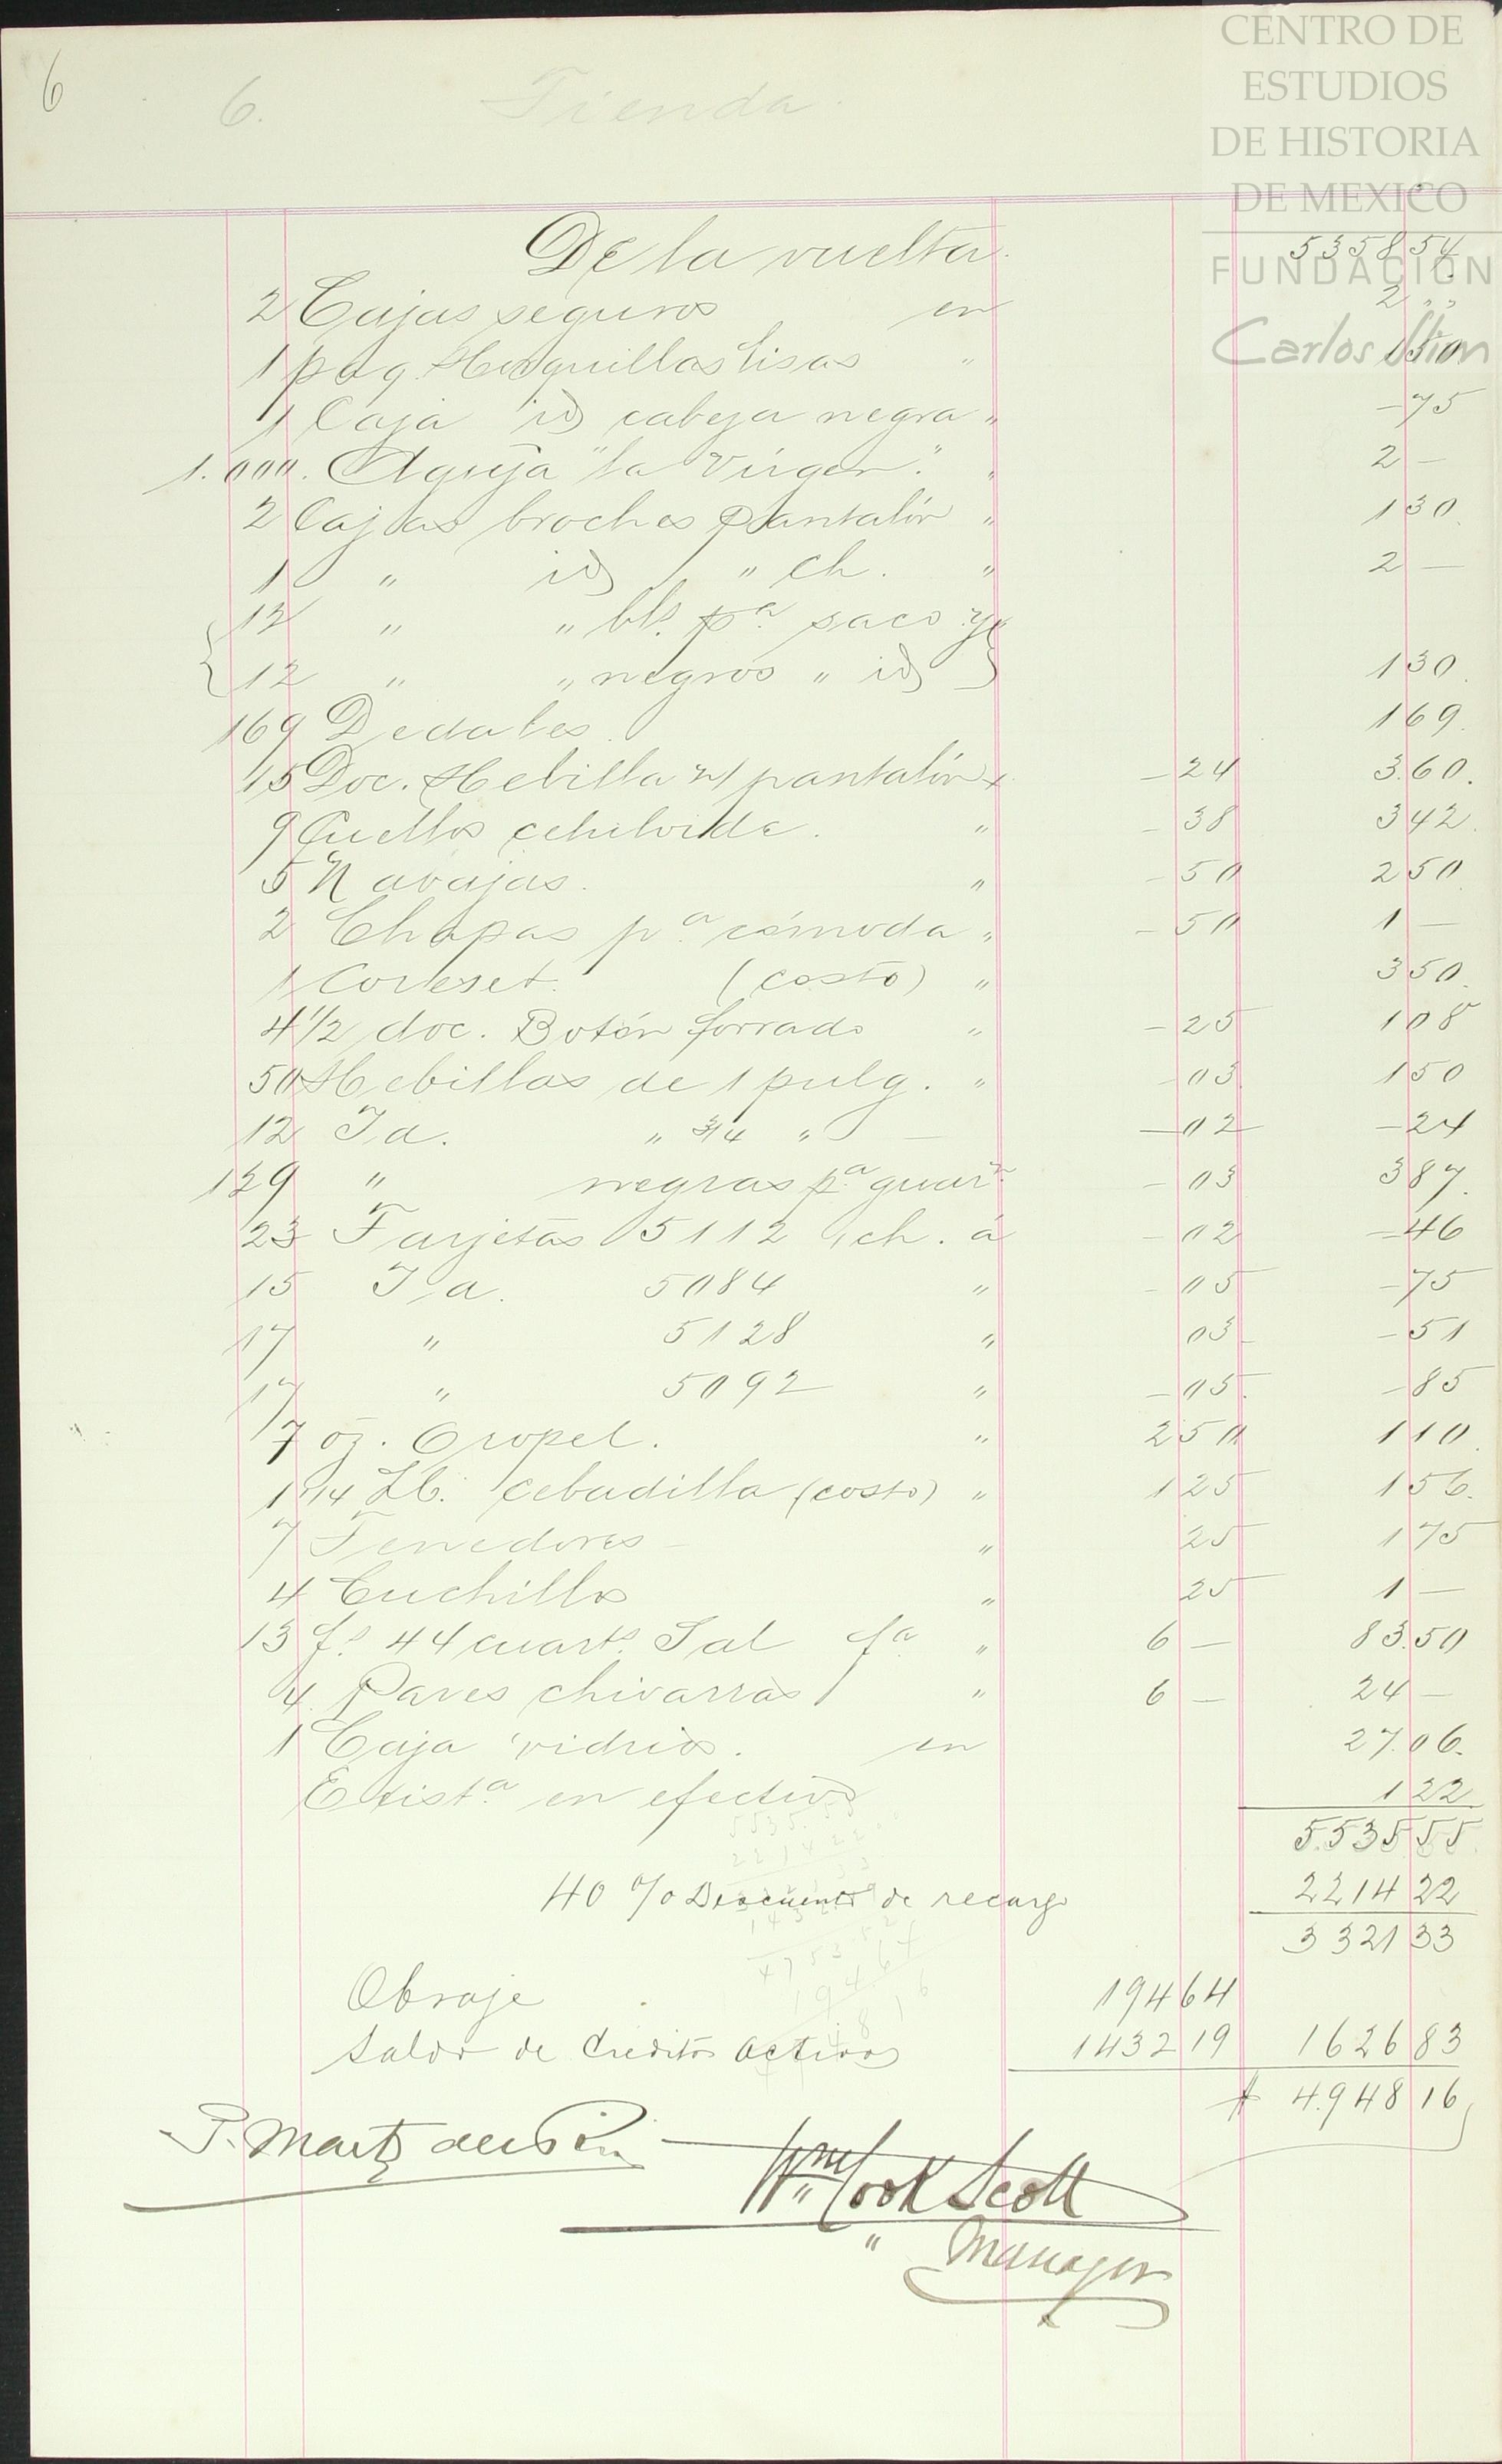 CENTRO DE
ESTUDIOS
DE HISTORIA
DE MEXICO
FUNDACIÓN
Carlos Slim
6 6. Tienda.
De la vuelta. 5358 54.
2 Cajas seguros en 2 "
1 paq. Horquillas lisas " 1 50
1 Caja id cabeza negra " - 75
1.000. Aguja "la Virgen." " 2 —
2 Cajas broches pantalón " 1 30.
1 " id " ch. " 2 —
12 " " bls. pa. saco y
12 " " negros " id 1 30.
169 Dedales. 1 69.
15 Doc. Hebilla n/ pantalón - 24 3.60.
9 Cuellos celuloide. " - 38 3 42.
5 Navajas. " - 50 2 50.
2 Chapas pa. cómoda " - 50 1 —
1 Corteset. (costo) " 3 50.
4 1/2 doc. Botón forrado " - 25 1 08
50 Hebillas de 1 pulg. " 03. 1 50
12 Id. " 3/4 " — - 02 - 24
129 " negras pa. guarn. - 03 3 87.
23 Tarjetas 5112 ch. á - 02 - 46
15 Id. 5084 " - 05 - 75
17 " 5128 " 03 - 51
17 " 5092 " - 05. - 85
7 oz. Oropel. " 2 50 1 10.
1 1/4 Lb. Cebadilla (costo) " 1 25 1 56.
7 Tenedores — " 25 1 75
4 Cuchillos " 25 1 —
13 fs. 44 cuarts. Sal fa. " 6 — 83.50
4. Pares chivarras " 6 — 24 —
1 Caja vidrios. en 27.06.
Exista. en efectivo 1 22
5.535 55
40 % Descuento de recargo 2214 22
3321 33
Obraje 194 64
Saldo de Creditos activos 1432 19 1626 83
$ 4.948 16
P. Martz del Rio
Wm Cook Scott
" Manager